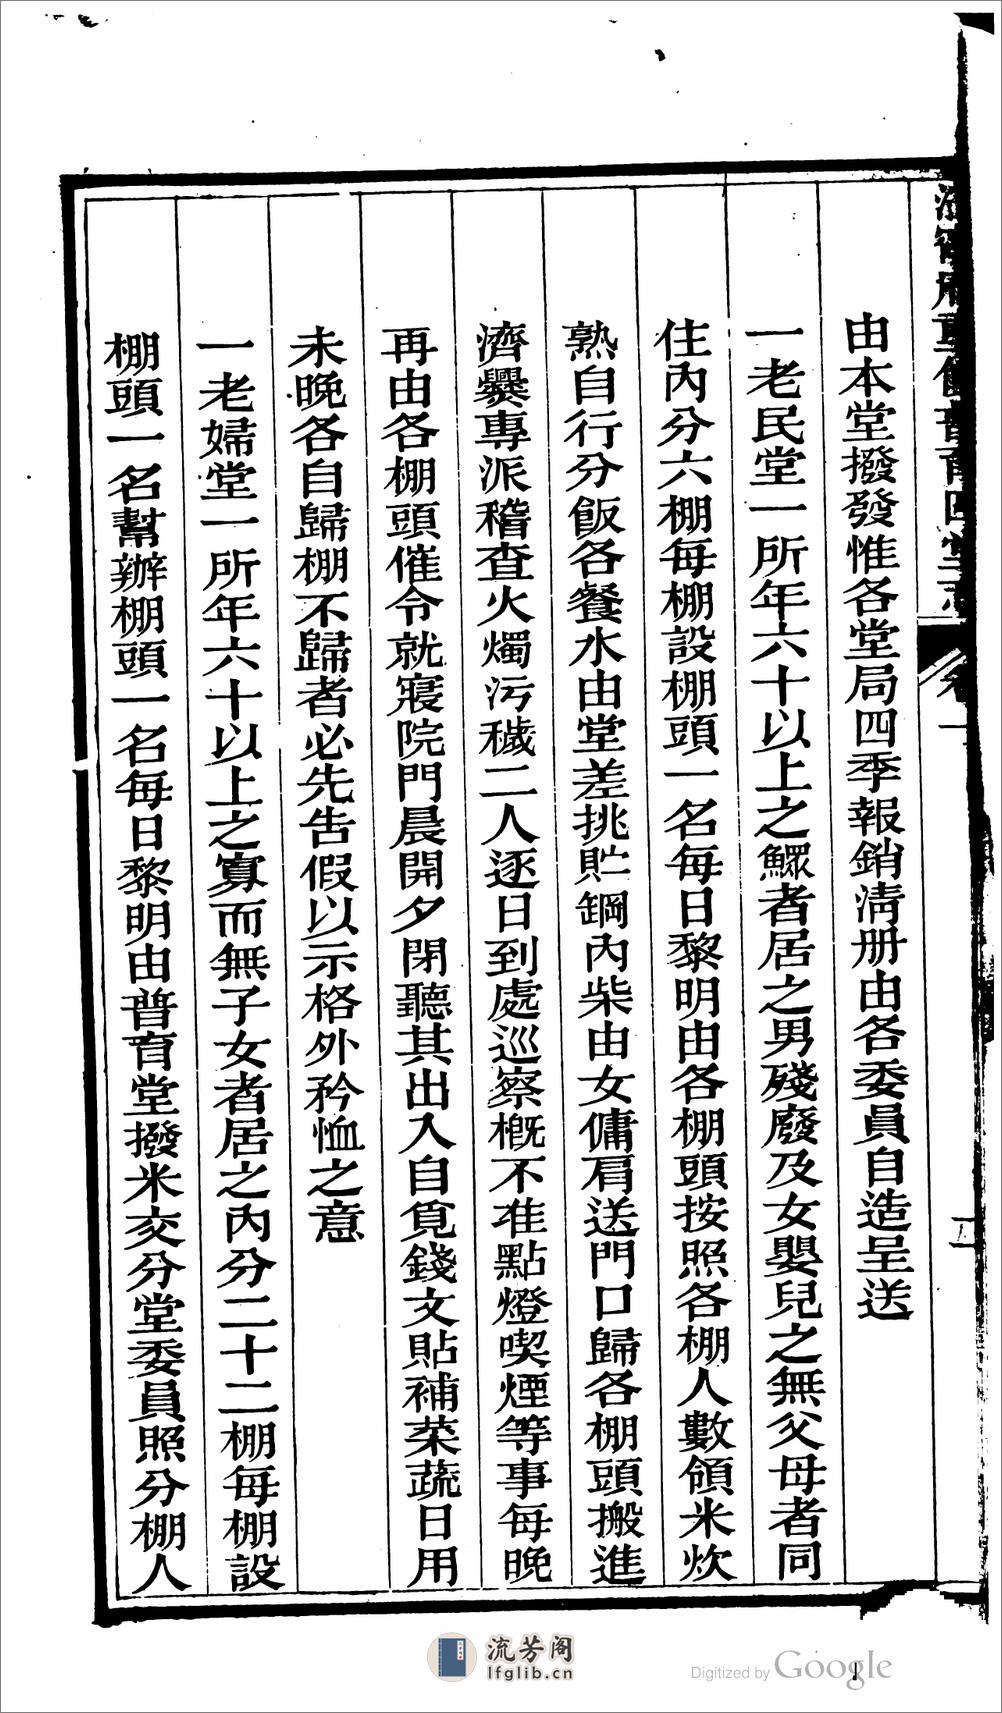 由本堂撥發惟各堂局四季報銷清册由各委員自造呈送
一老民堂一所年六十以上之鰥者居之男殘廢及女嬰兒之無父母者同
住內分六棚每棚設棚頭一名每日黎明由各棚頭按照各棚人數領米炊
熟自行分飯各餐水由堂差挑貯鋼內柴由女傭肩送門口歸各棚頭搬進
濟爨專派稽查火燭污穢二人逐日到處巡察概不准點燈喫煙等事每晚
再由各棚頭催令就寢院門晨開夕閉聽其出入自覓錢文貼補菜蔬日用
未晚各自歸棚不歸者必先告假以示格外矜恤之意
一老婦堂一所年六十以上之寡而無子女者居之內分二十二棚每棚設
棚頭一名幫辦棚頭一名每日黎明由普育堂撥米交分堂委員照分棚人
流芳阁
lfglib.cn
Digitized by Google